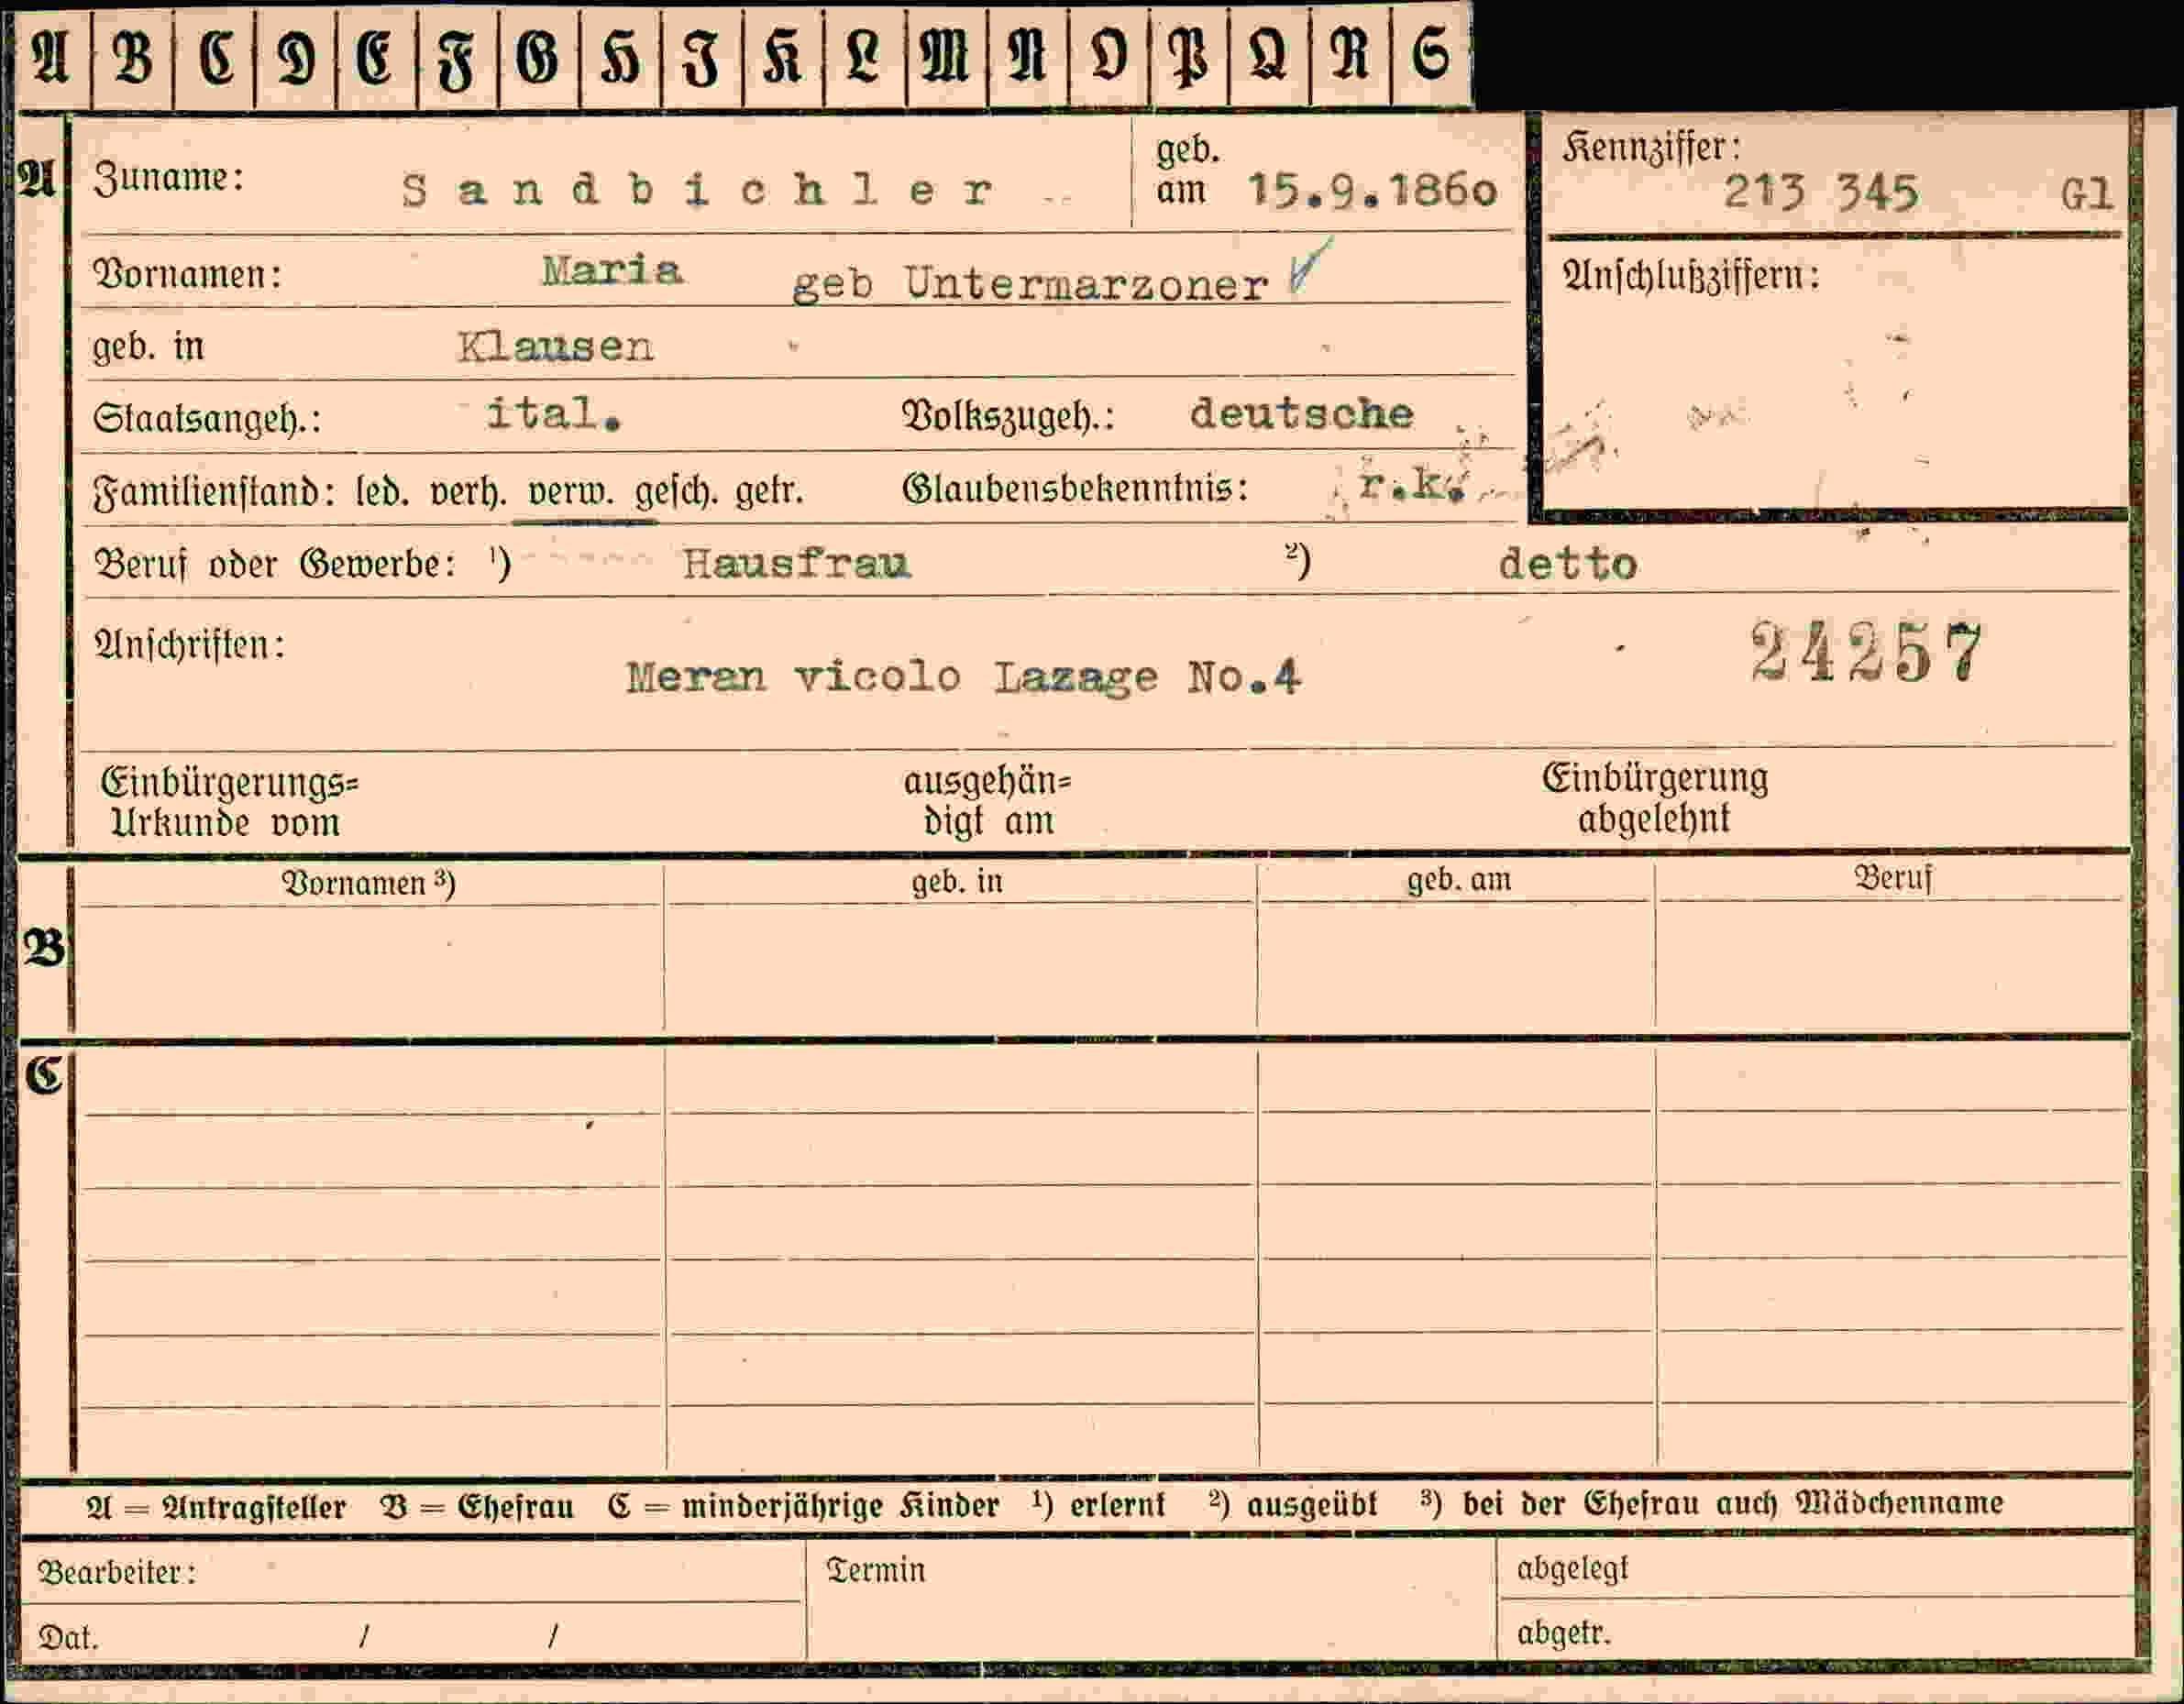 A B C D E F G H I K L M N O P Q R S
A Zuname: Sandbichler geb. am 15.9.1860 Kennziffer: 213 345 Gl
Vornamen: Maria geb Untermarzoner Anschlußziffern:
geb. in Klausen
Staatsangeh.: ital. Volkszugeh.: deutsche
Familienstand: led. verh. verw. gesch. getr. Glaubensbekenntnis: r.k.
Beruf oder Gewerbe: ¹) Hausfrau ²) detto
Anschriften: 24257
Meran vicolo Lazage No.4
Einbürgerungs= ausgehän= Einbürgerung
Urkunde vom digt am abgelehnt
Vornamen ³) geb. in geb. am Beruf
B
C
A = Antragsteller B = Ehefrau C = minderjährige Kinder ¹) erlernt ²) ausgeübt ³) bei der Ehefrau auch Mädchenname
Bearbeiter: Termin abgelegt
Dat. / / abgetr.